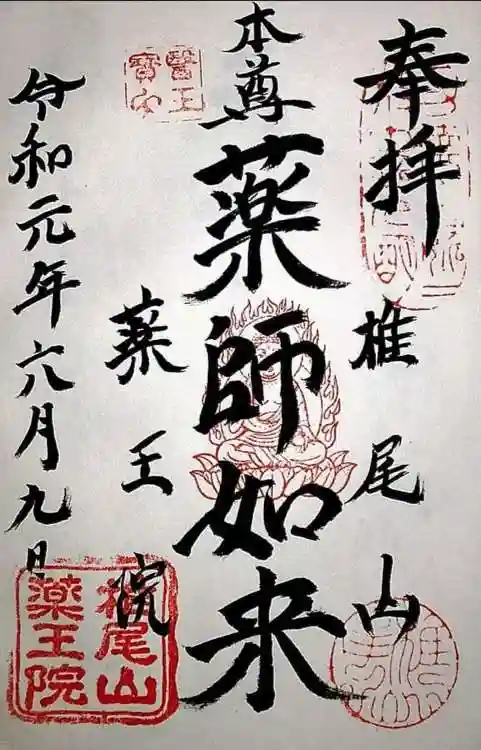 奉拝
椎尾山
本尊
薬師如来
薬王院
令和元年六月九日
醫王
寳印
椎尾山
薬王院